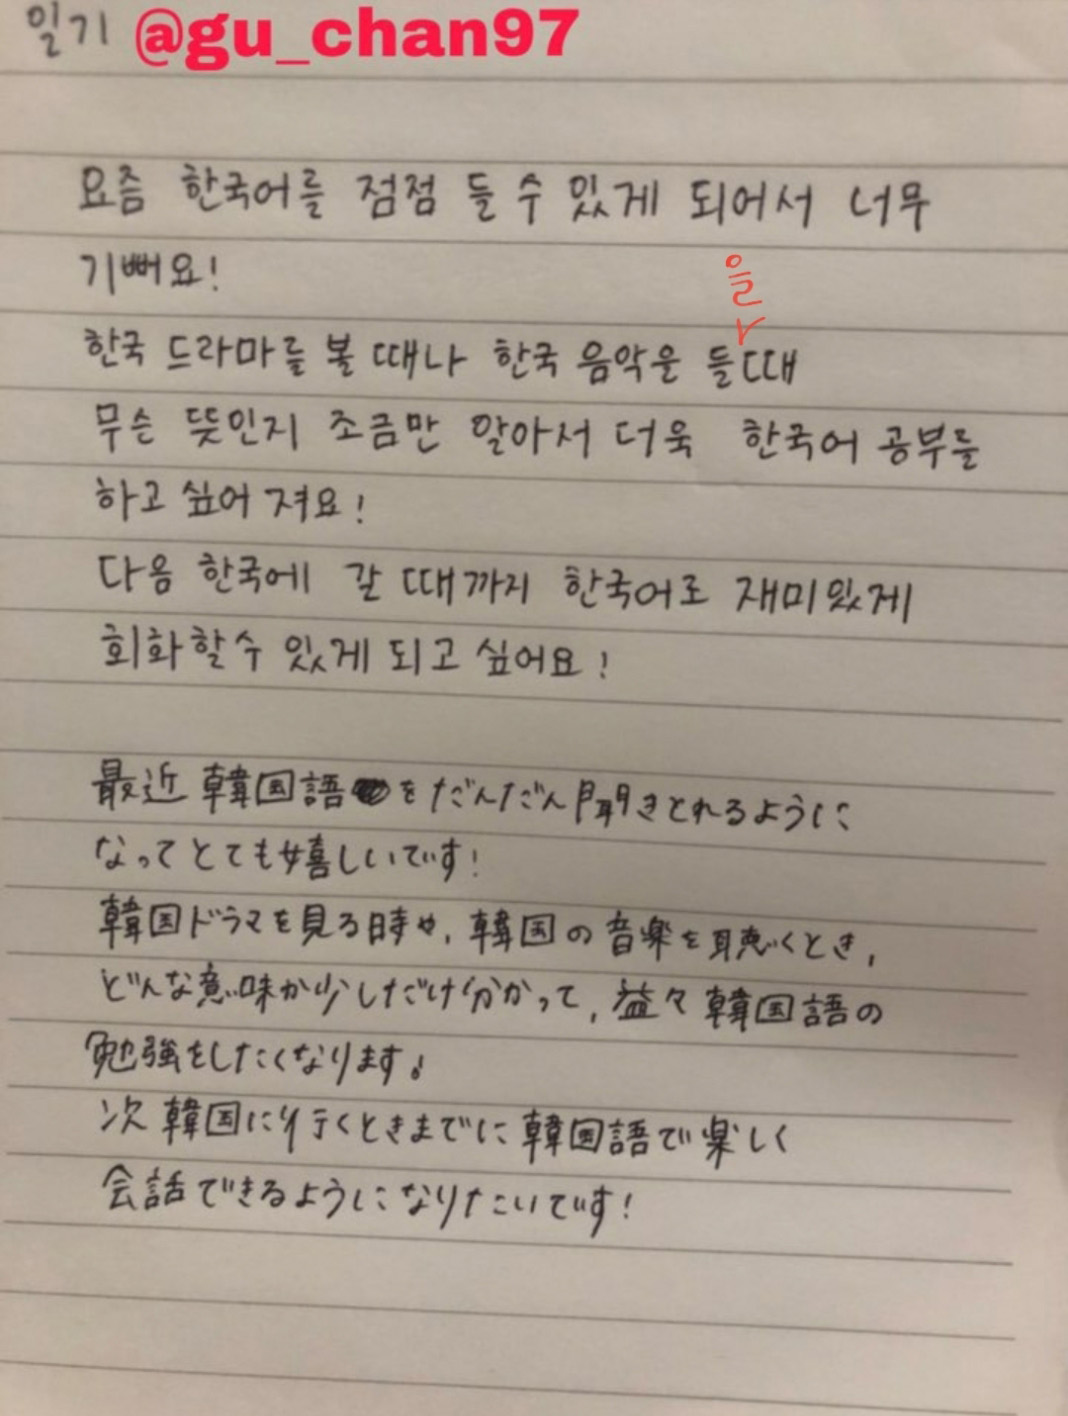 일기 @gu_chan97
요즘 한국어를 점점 들 수 있게 되어서 너무
기뻐요!
을
한국 드라마를 볼 때나 한국 음악은 들때
무슨 뜻인지 조금만 알아서 더욱 한국어 공부를
하고 싶어 져요!
다음 한국에 갈 때까지 한국어로 재미있게
회화할수 있게 되고 싶어요!
最近 韓国語をだんだん聞きとれるように
なってとても嬉しいです!
韓国ドラマを見る時や、韓国の音楽を聴くとき、
どんな意味か少しだけ分かって、益々韓国語の
勉強をしたくなります。
次韓国に行くときまでに韓国語で楽しく
会話できるようになりたいです!